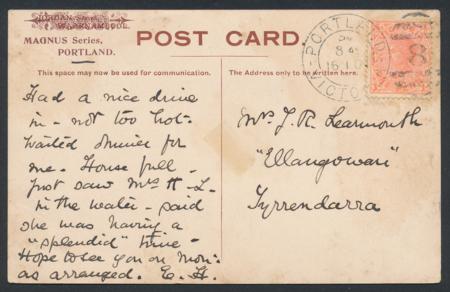 JORDAN
WARRNAMBOOL.
MAGNUS Series,
PORTLAND.
POST CARD.
This space may now be used for communication.
The Address only to be written here.
PORTLAND
8
VICTO
8
Had a nice drive
in - not too hot -
waited dinner for
me - House full -
Just saw Mrs H - L -
in the water - said
she was having a
"splendid" time -
Hope to see you on Mon:
as arranged. E. H.
Mrs J. R. Learmonth
"Ellangowan"
Tyrrendarra